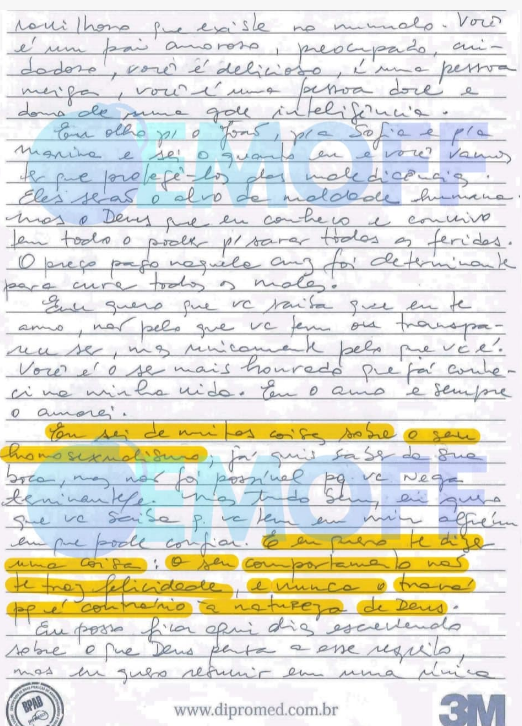 maravilhoso que existe no mundo. Você
é um pai amoroso, preocupado, cui-
dadoso, você é delicioso, é uma pessoa
meiga, você é uma pessoa doce e
dona de uma gde inteligência.
Eu olho p/ o João, p/a Sofia e p/a
Marina e sei o quanto eu e você vamos
ter que protegê-los das maledicências.
Eles serão o alvo da maldade humana.
Mas o Deus que eu conheço e convivo
tem todo o poder p/ sarar todas as feridas.
O preço pago naquela cruz foi determinante
para curar todos os males.
Eu quero que vc saiba que eu te
amo, não pelo que vc tem ou transpa-
rece ser, mas unicamente pelo que vc é.
Você é o ser mais honrado que já conhe-
ci na minha vida. Eu o amo e sempre
o amarei.
Eu sei de muitas coisas sobre o seu
homossexualismo, já quis saber da sua
boca, mas não foi possível pq. vc nega
terminante/e. Mas tudo bem, eu quero
que vc saiba q. vc tem em mim alguém
em que pode confiar. E eu quero te dizer
uma coisa: o seu comportamento não
te traz felicidade, e nunca o trará
pq é contrário a natureza de Deus.
Eu posso ficar aqui dias escrevendo
sobre o que Deus pensa a esse respeito,
mas eu quero resumir em uma única
DEMOFF
DEMOFF
DPAD
www.dipromed.com.br
3M